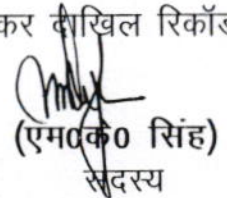 कर दाखिल रिकॉर्ड
(एम0के0 सिंह)
सदस्य